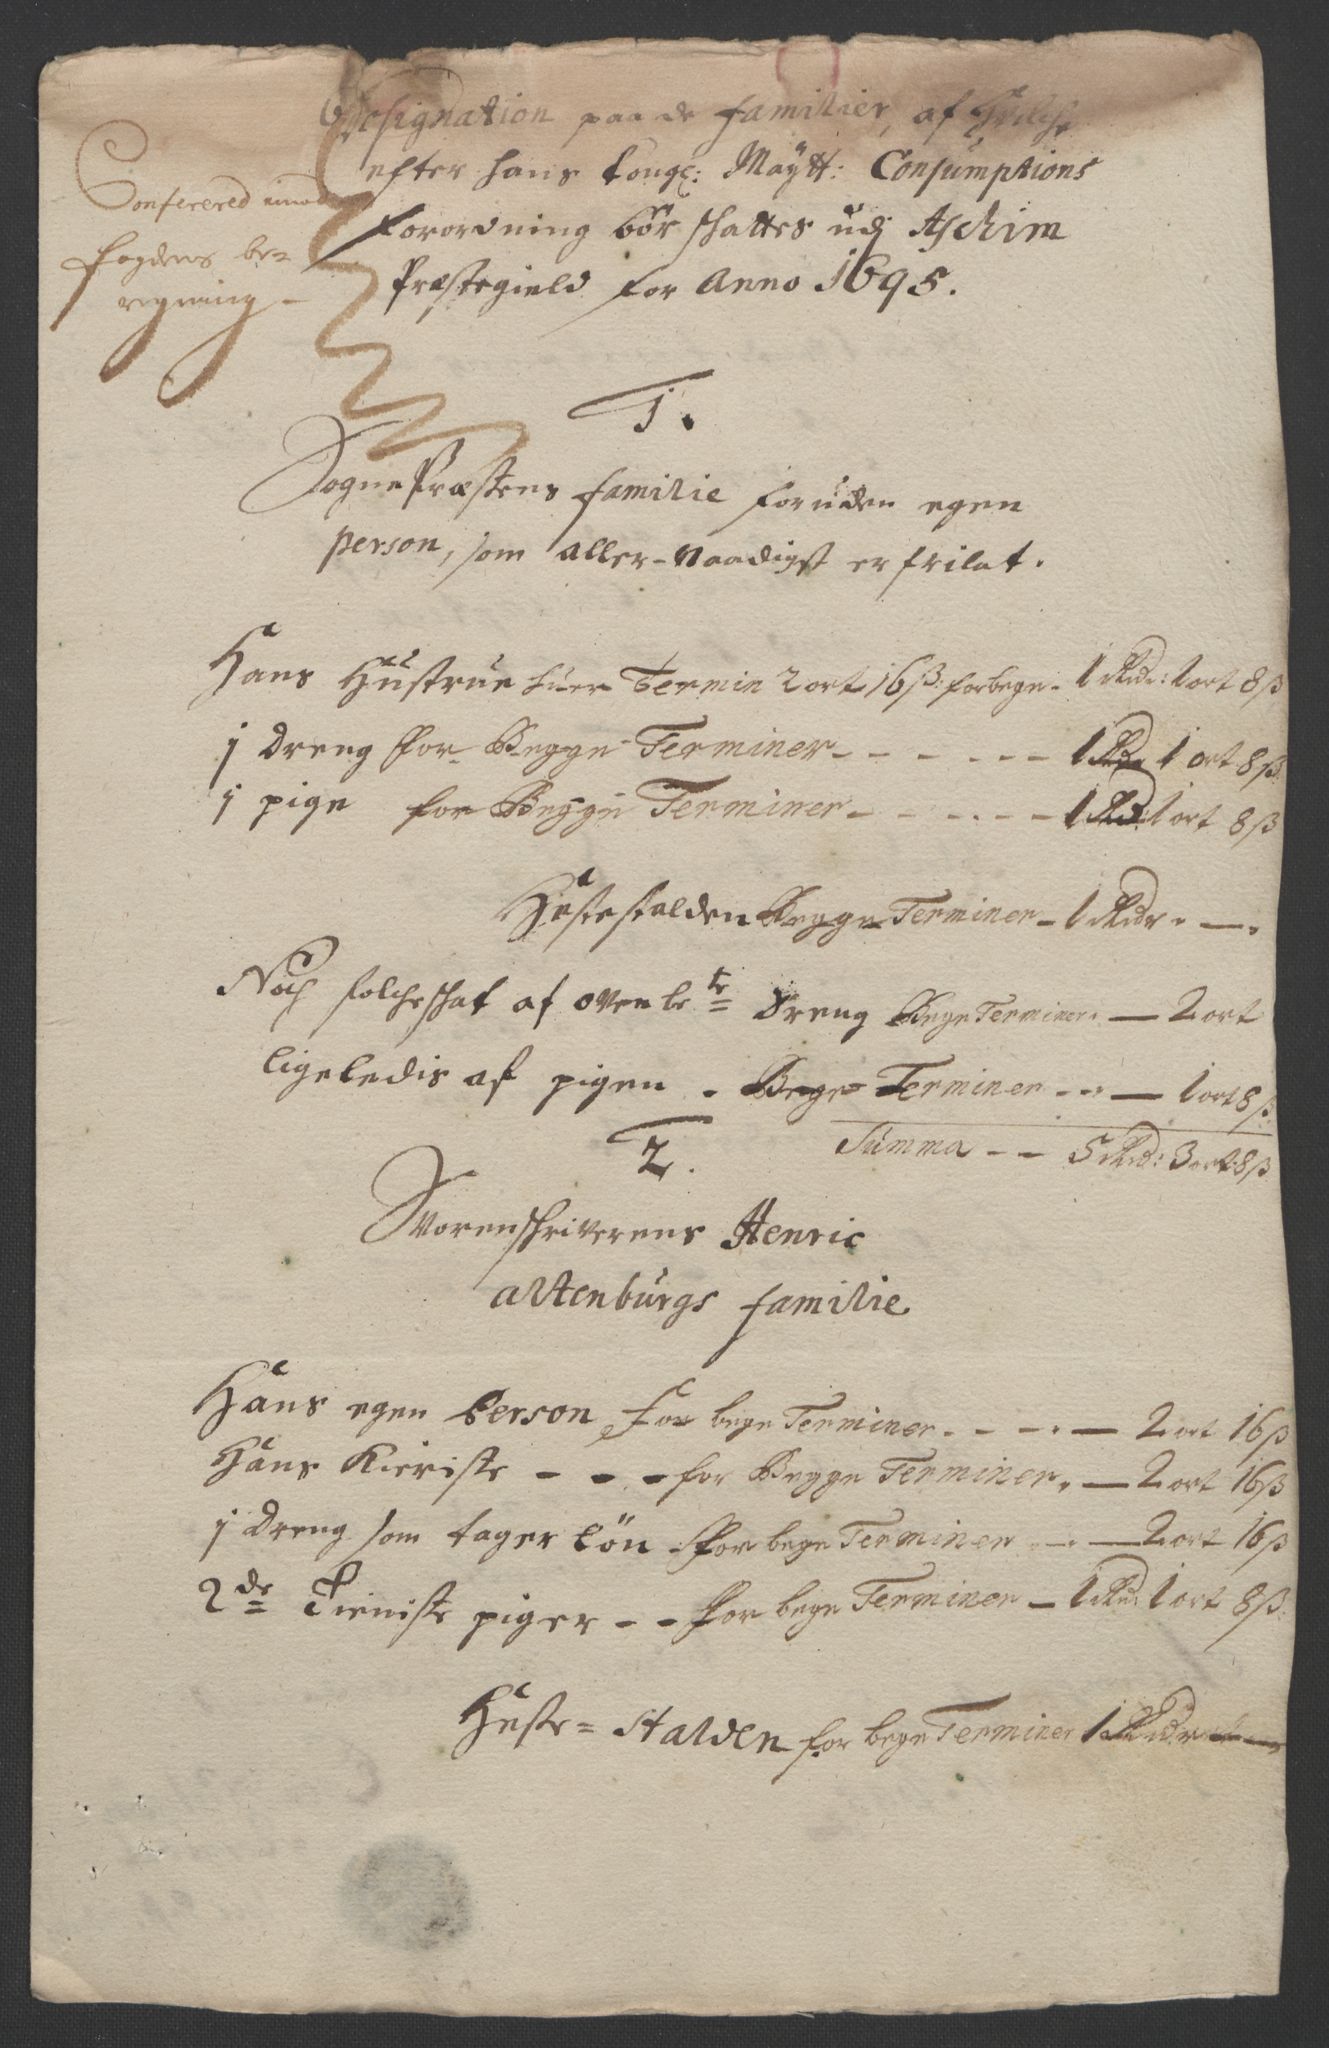 Designation paa de familier, af Hvilche
efter hans Kongl: Maytt: Consumptions
Forordning bör schattes udj Aschim
Præstegield for Anno 1695.
Conferered imod
fogdens be=
regning –
1.
SognePræstens familie foruden egen
person, som aller-Naadigst er frilat.
Hans Hustrue huer Termin 2 ort 16 ß forbege – 1 Rdr: 1 ort 8 ß
j Dreng for Begge Terminer – – – – – – 1 Rdr 1 ort 8 ß
j pige for Begge Terminer – – – – – – 1 Rdr 1 ort 8 ß
Hestestalden Begge Terminer – 1 Rdr. —.
Noch folcheschat af ovenbe te= Dreng Bege Terminer. — 2 ort
ligeledis af pigen – Bege Terminer – – — 1 ort 8 ß
Summa – – 5 Rd: 3 ort: 8 ß
2.
Sorenschriverens Henric
Altenburgs familie
Hans egen Person for bege Terminer – – – – — 2 ort 16 ß
Hans Kieriste – – – for Begge Terminer. — 2 ort 16 ß
j Dreng som tager Lön – for bege Terminer – — 2 ort 16 ß
2 de= Tieniste piger – – for bege Terminer – 1 Rd: 1 ort 8 ß:
Heste= Stalden for bege Terminer 1 Rdr —